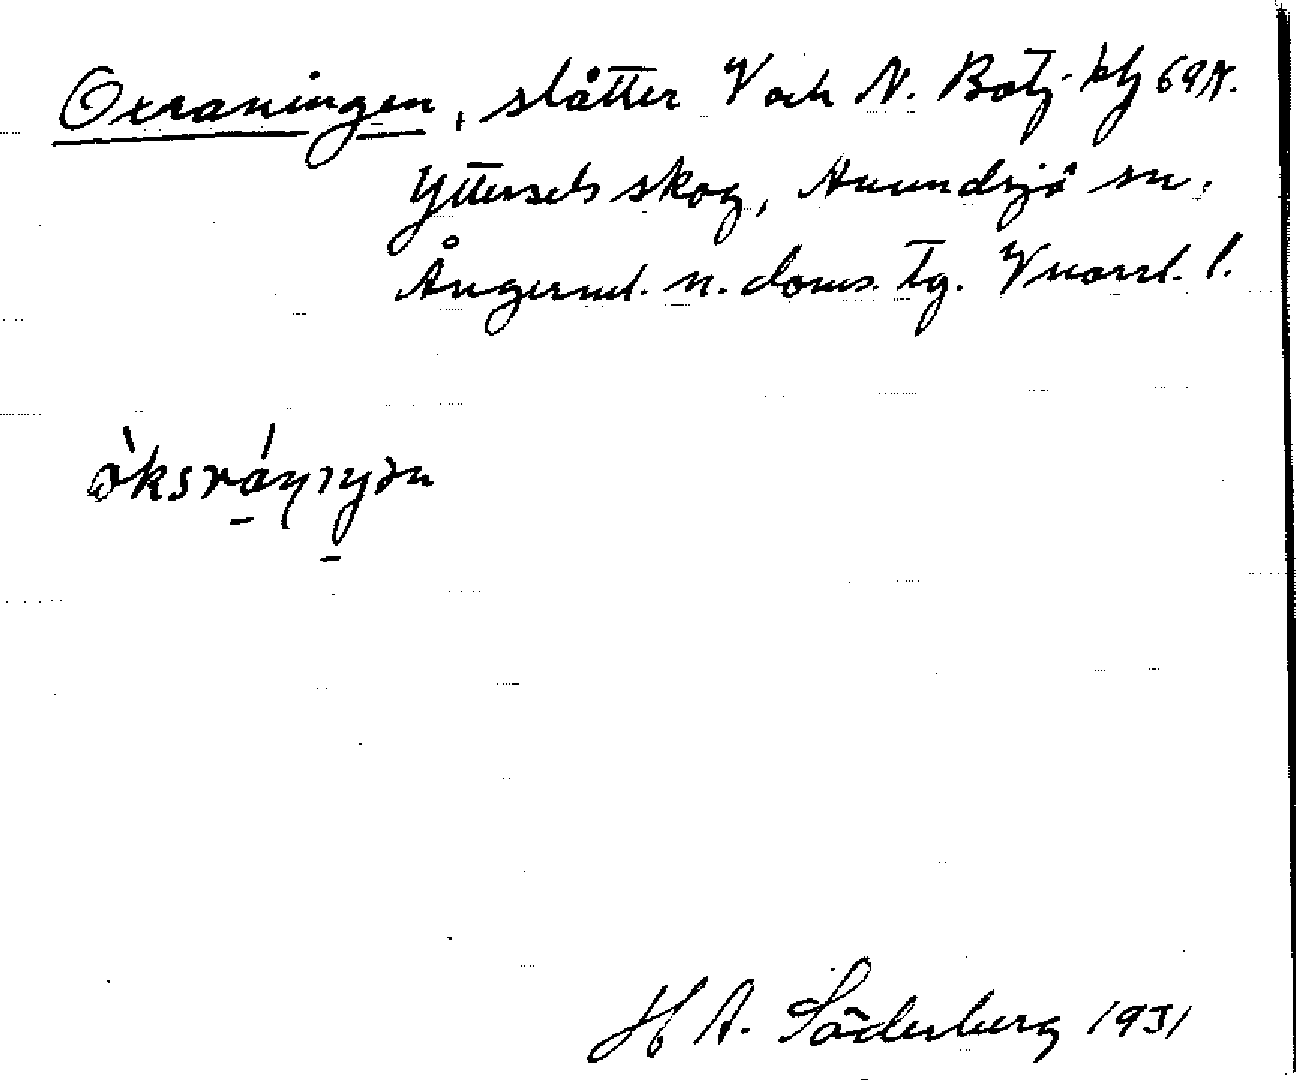 Oxraningen, slåtter V och N. Botj. kbl 69N.
Yttersels skog, Anundsjö sn,
Ångerml. n. doms. tg. V norrl. l.
H A. Söderberg 1931